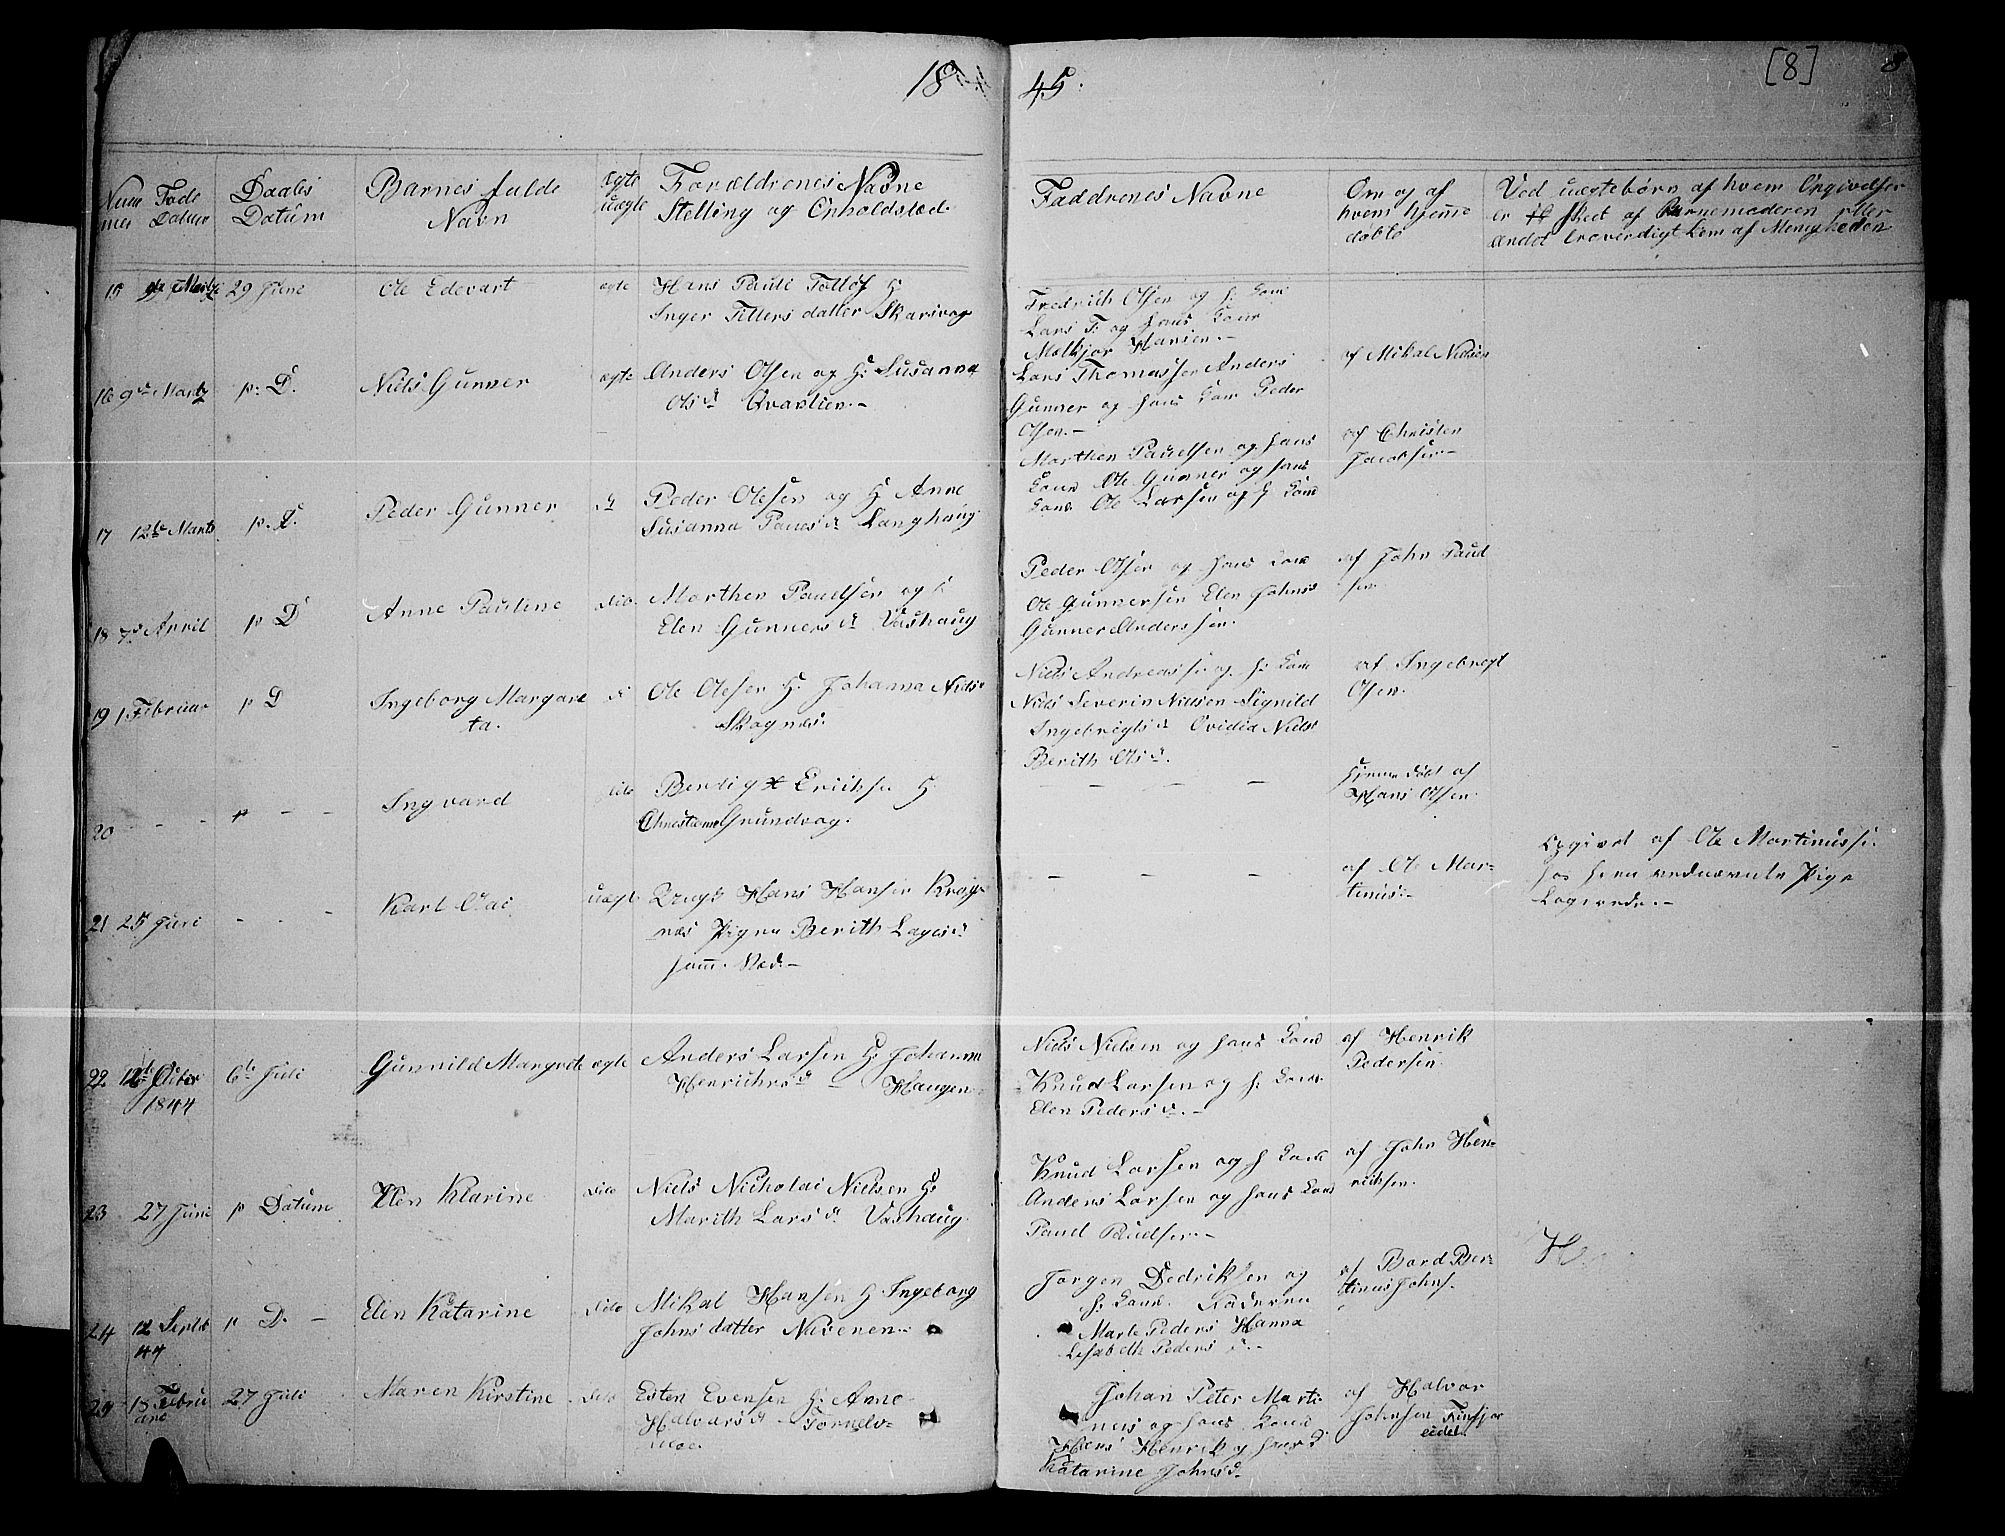 1845.
[8]
8
Num mer
Føde Datum
Daabes Datum
Barnes fulde Navn
ægte uægte
Forældrenes Navne
Stelling og Opholdsted.
Faddrenes Navne
Om og af hvem hjemme døbte
Ved uægtebørn af hvem Ongivelser
er skeet af Barnemoderen eller
andet troverdigt Lem af Menigheden
15 Martz 29 June Ole Edevart ægte Hans Pauli Tolløf H:
Inger Tillers datter Skarsvog
Fredrich Olsen og h: Kone
Lars T: og hans Kone
Melkjor Hansen.-
16 9de Martz p: D. Niels Gunner ægte Anders Olsen og H: Susanna
Ols d
Lars Thomassen Anders
Gunner og hans Kone Peder
Olsen.-
af Mikal Nielsen
17 12te Marts p. D. Peder Gunner d Peder Olesen og H Anne
Susanna Paues d Langhaug
Morthen Paulsen og hans
Kone Ole Gunner og hans
Kone Ole Larsen og h Kone
af Christen
Jacobsen-
18 7de April p D Anne Pauline dito Morthen Paulsen og h
Elen Gunners d Vashaug
Peder Olsen og hans Kone
Ole Gunnersen Elen Johns
Gunner Anderssen.
af John Paul
sen.
19 1 Februar p D Ingeborg Margare
ta.
d Ole Olesen H: Johanna Niels
Skognæs.
Niels Andreass: og h: Kone
Niels Severin Nielsen Signild
Ingebrigts d Ovidia Niels
Berith Ols d.
af Ingebregt
Olsen.
20 - - - p - - Ingvard dito Bendigx Eriksen H:
Christianne Grundvog.
- - -
Hjemme døbt af
Hans Olsen.
21 25 Juni - - - Karl Olai uægte Hans Hansen Krog
næs Pigen Berith Lagesd
sam. Sted.-
- - -
af Ole Mar-
tinus.-
Opgivet af Ole Martinuss:
hos hvem vednævnte Pige
Logerede.-
22 12te Octbr
1844
6te Juli Gunnild Margrete ægte Anders Larsen H: Johanna
Henrichs d - Haugen-
Niels Nielsen og hans Kone
Knud Larsen og h: Kone
Elen Peders d.-
af Henrik
Pedersen.
23 27 Juni p Datum Elen Klarine dito Niels Nicholai Nielsen H:
Marith Lars d Vashaug.
Knud Larsen og h Kone
Anders Larsen og hans Kone
Paul Paulsen-
af John Hen-
riksen.
24 12 Septb
44
p D. - Elen Katarine dito Mikal Hansen H: Ingeborg
Johns datter Navenen.-
Jørgen Dedriksen og
h: Kone. Faderen
Marte Peders Hanna
Lisabeth Peders d.-
af Bard Ber-
tinus Johns.
H
29 15 Febru
are
27 Juli Maren Kirstine dito Esten Evensen H: Anne
Halvars d - Tornelv-
moe.
Johan Peter Marti
neus og hans Kone
Hans Henrik og hans d
Katarine Johns d-
af Halvor
Johnsen Finfjor
eidet